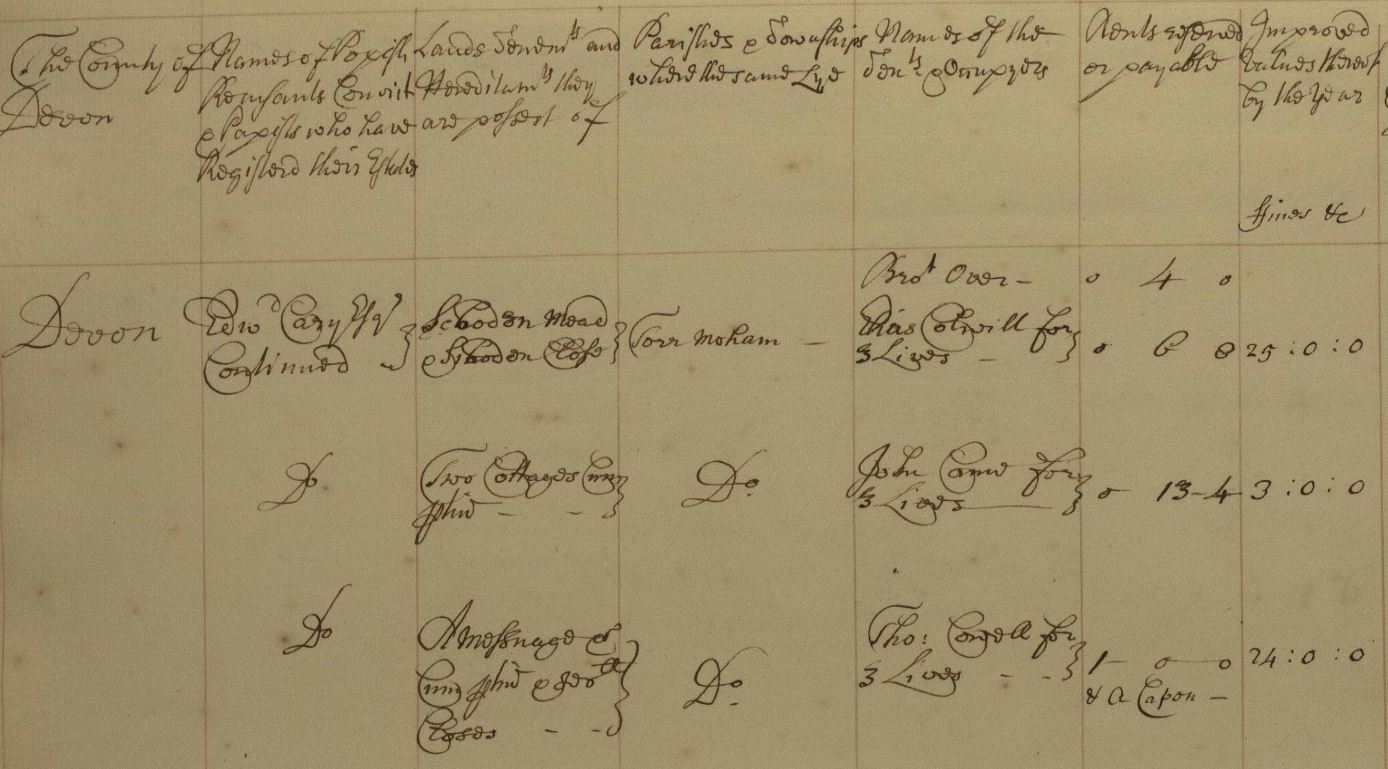 The County of
Devon
Names of Popish
Recusants Convict
& Papists who have
Registerd their Estates
Lands Tenemts and
Hereditamts they
are possest of
Parishes & Townships
where the same Lye
Names of the
Tents & Occupyers
Rents reserved
or payable
Improved
Values thereof
by the Year
Fines &c
Brot Over - 0 4 0
Devon
Edwd Cary Esqr
Continued
Mead
& Close
Torr Moham -
Elias Colwill for
3 Lives -
0 6 8
25 : 0 : 0
Do
Two Cottages Cum
ptin - -
Do
John Came for
3 Lives
0 13-4
3 : 0 : 0
Do
A Messuage &
Cum ptin &
Closes - -
Do
Tho: for
3 Lives - -
1 - 0 - 0
& A Capon -
24 : 0 : 0